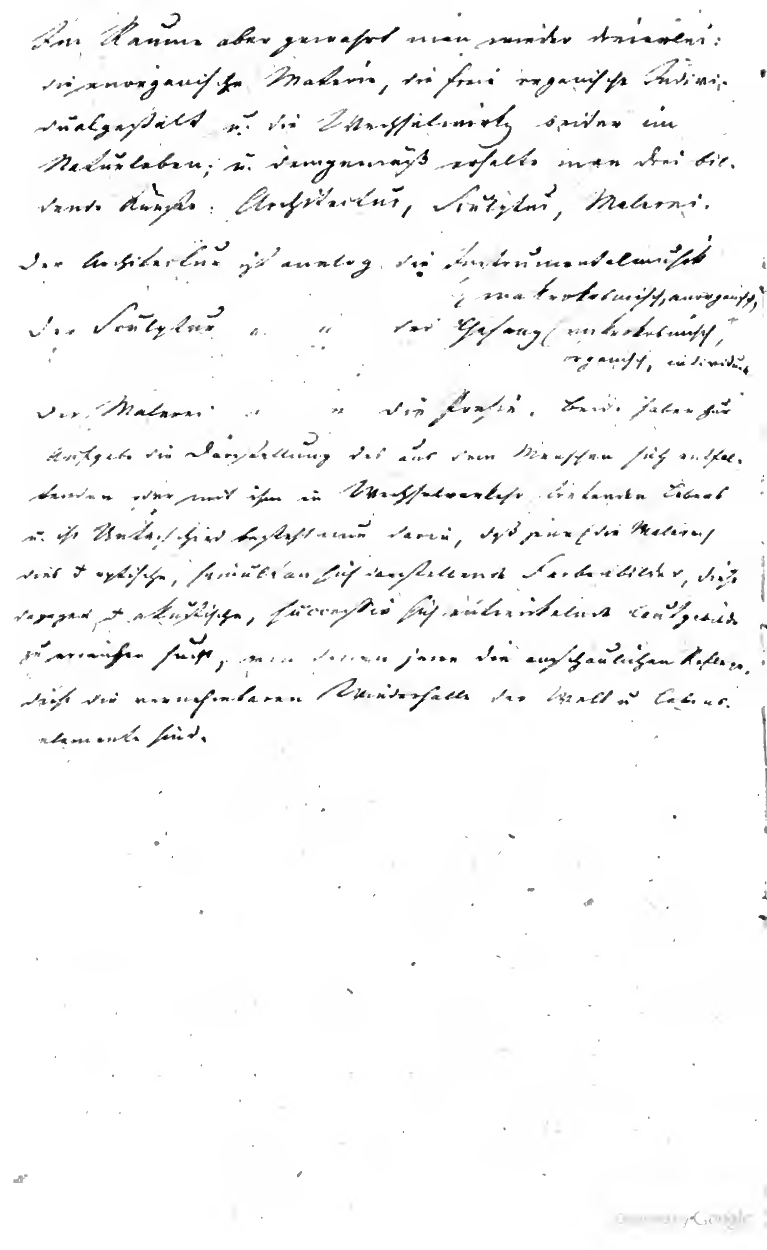 Im Raume aber gewahrt man wieder dreierlei:
die anorganische Materie, die freie organische Indivi-
dualgestalt u. die Wechselwirkg beider im
Naturleben; u. demgemäß erhalte man drei bil-
dende Künste: Architectur, Sculptur, Malerei.
Der Architectur ist analog die Instrumentalmusik
(makrokosmisch, anorganisch)
Der Sculptur " " der Gesang (mikrokosmisch,
organisch, individuell
Der Malerei " " die Poesie. Beide haben zur
Aufgabe die Darstellung des aus dem Menschen sich entfal-
tenden oder mit ihm in Wechselverkehr tretenden Lebens
u. ihr Unterschied besteht nur darin, daß jene (die Malerei)
dies d optische, simultan sich darstellende Farbenbilder, diese
dagegen d akustische, successiv sich entwickelnde Lautgebilde
zu erreichen sucht, von denen jene die anschaulichen Reflexe,
diese die vernehmbaren Wiederhalle der Welt u Lebens-
elemente sind.
Google